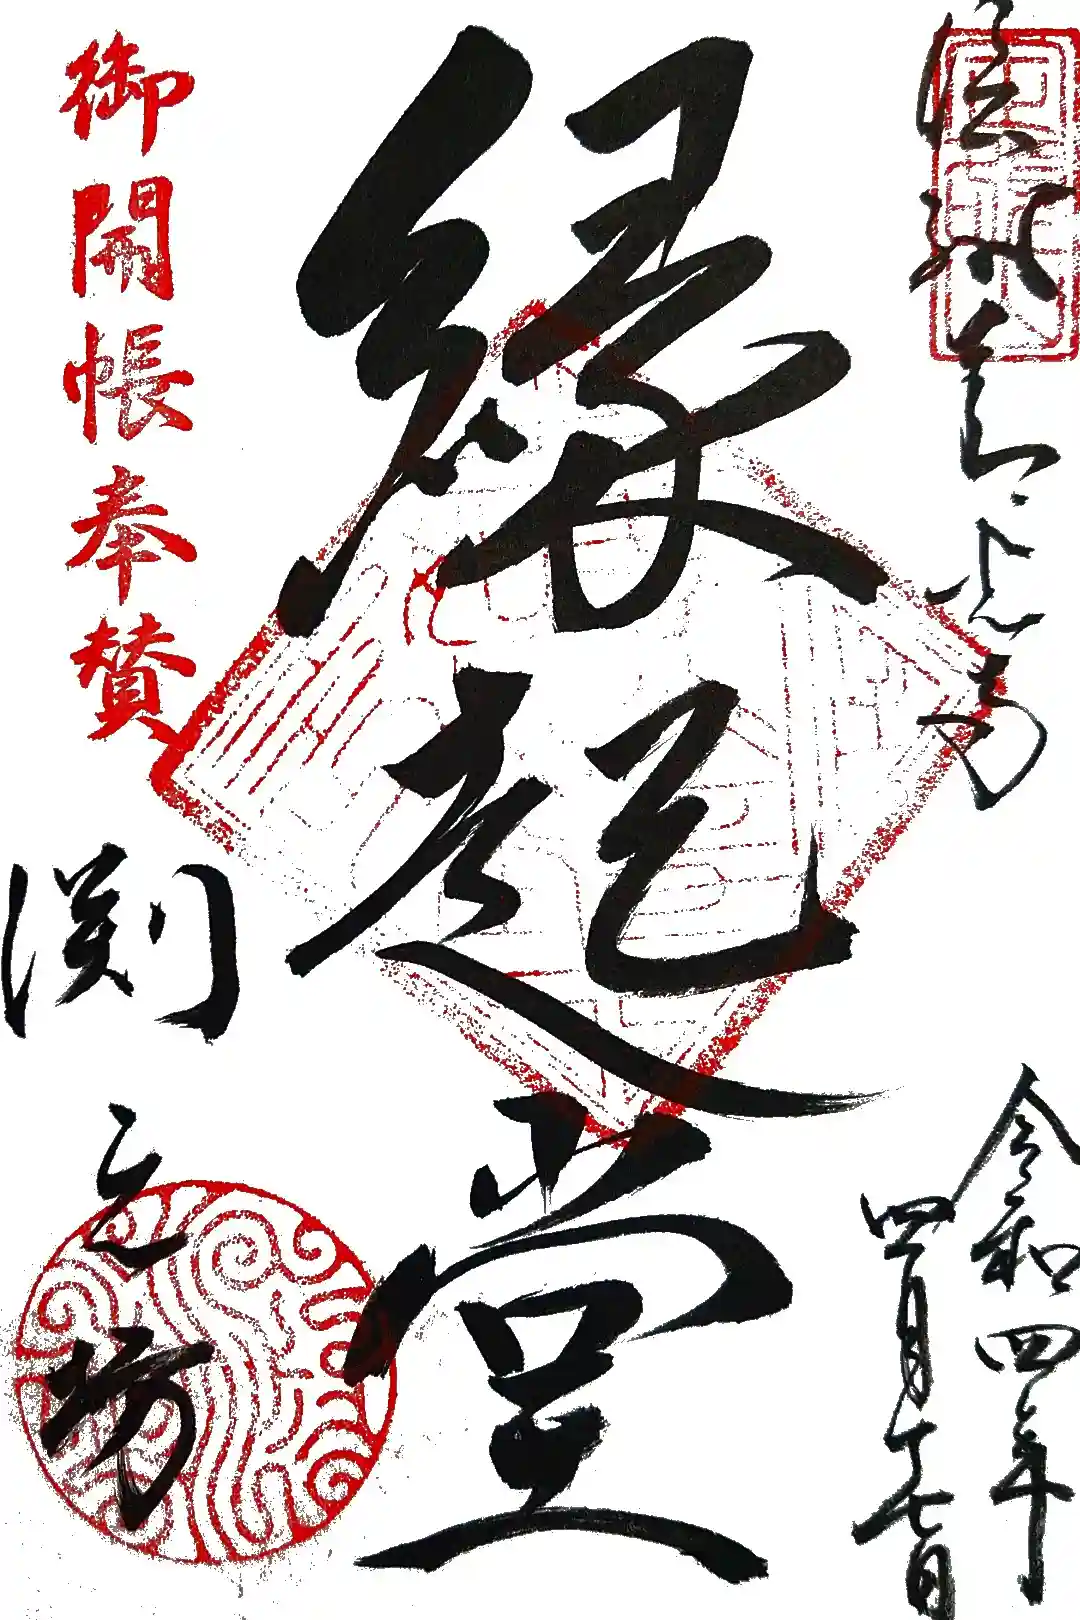 信州善光寺
令和四年
四月十七日
縁起堂
御開帳奉賛
渕之坊